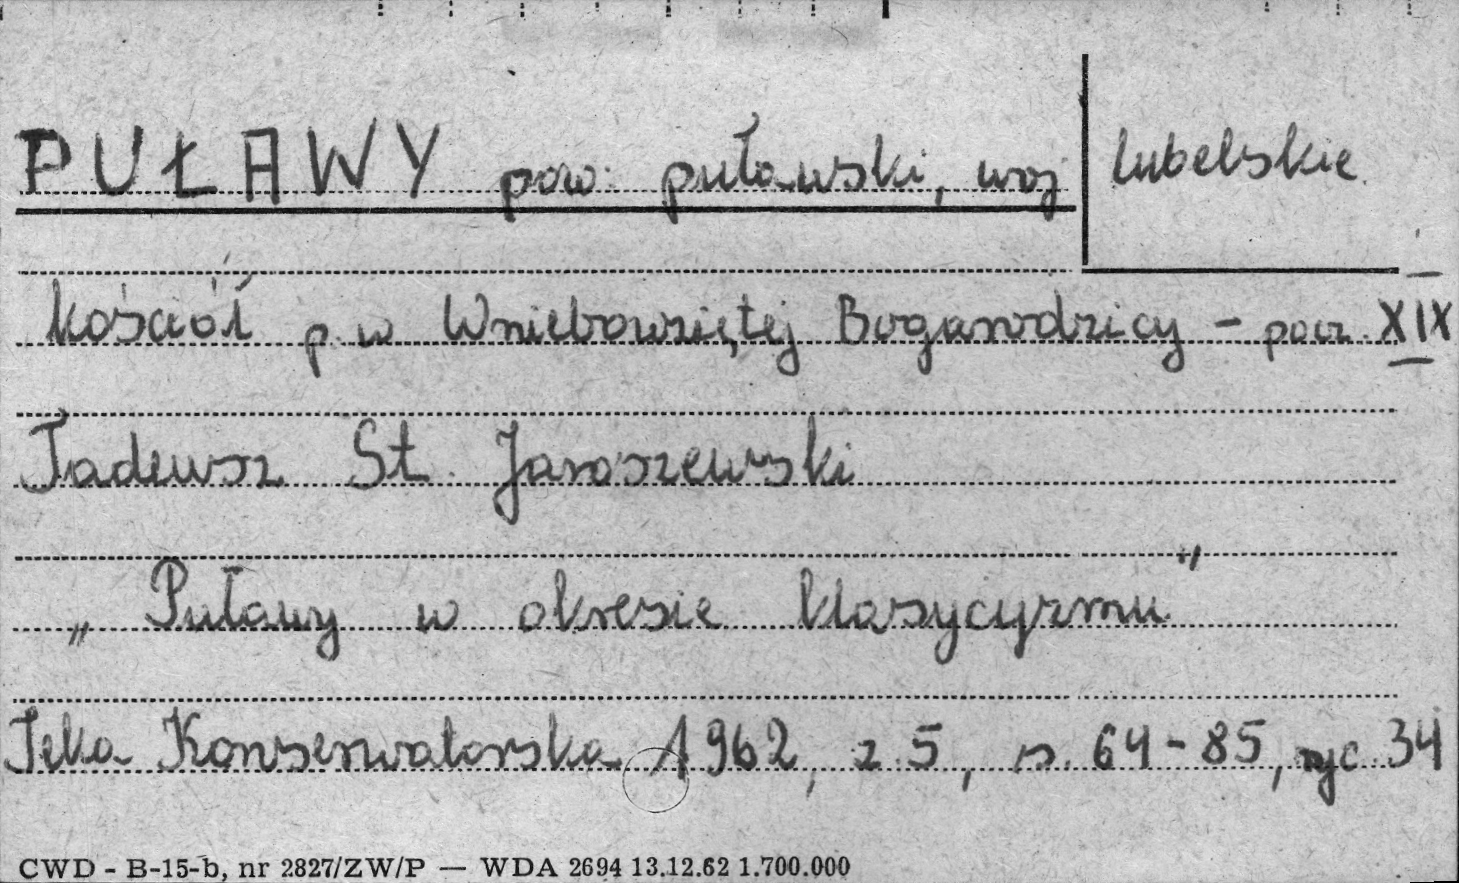 PUŁAWY pow. puławski, woj lubelskie
kościół p.w Wniebowziętej Bogarodzicy - pocz. XIX
Tadeusz St. Jaroszewski
„Puławy w okresie klasycyzmu"
Teka Konserwatorska 1962, z. 5, s. 64-85, ryc. 34
CWD - B-15-b, nr 2827/ZW/P — WDA 2694 13.12.62 1.700.000